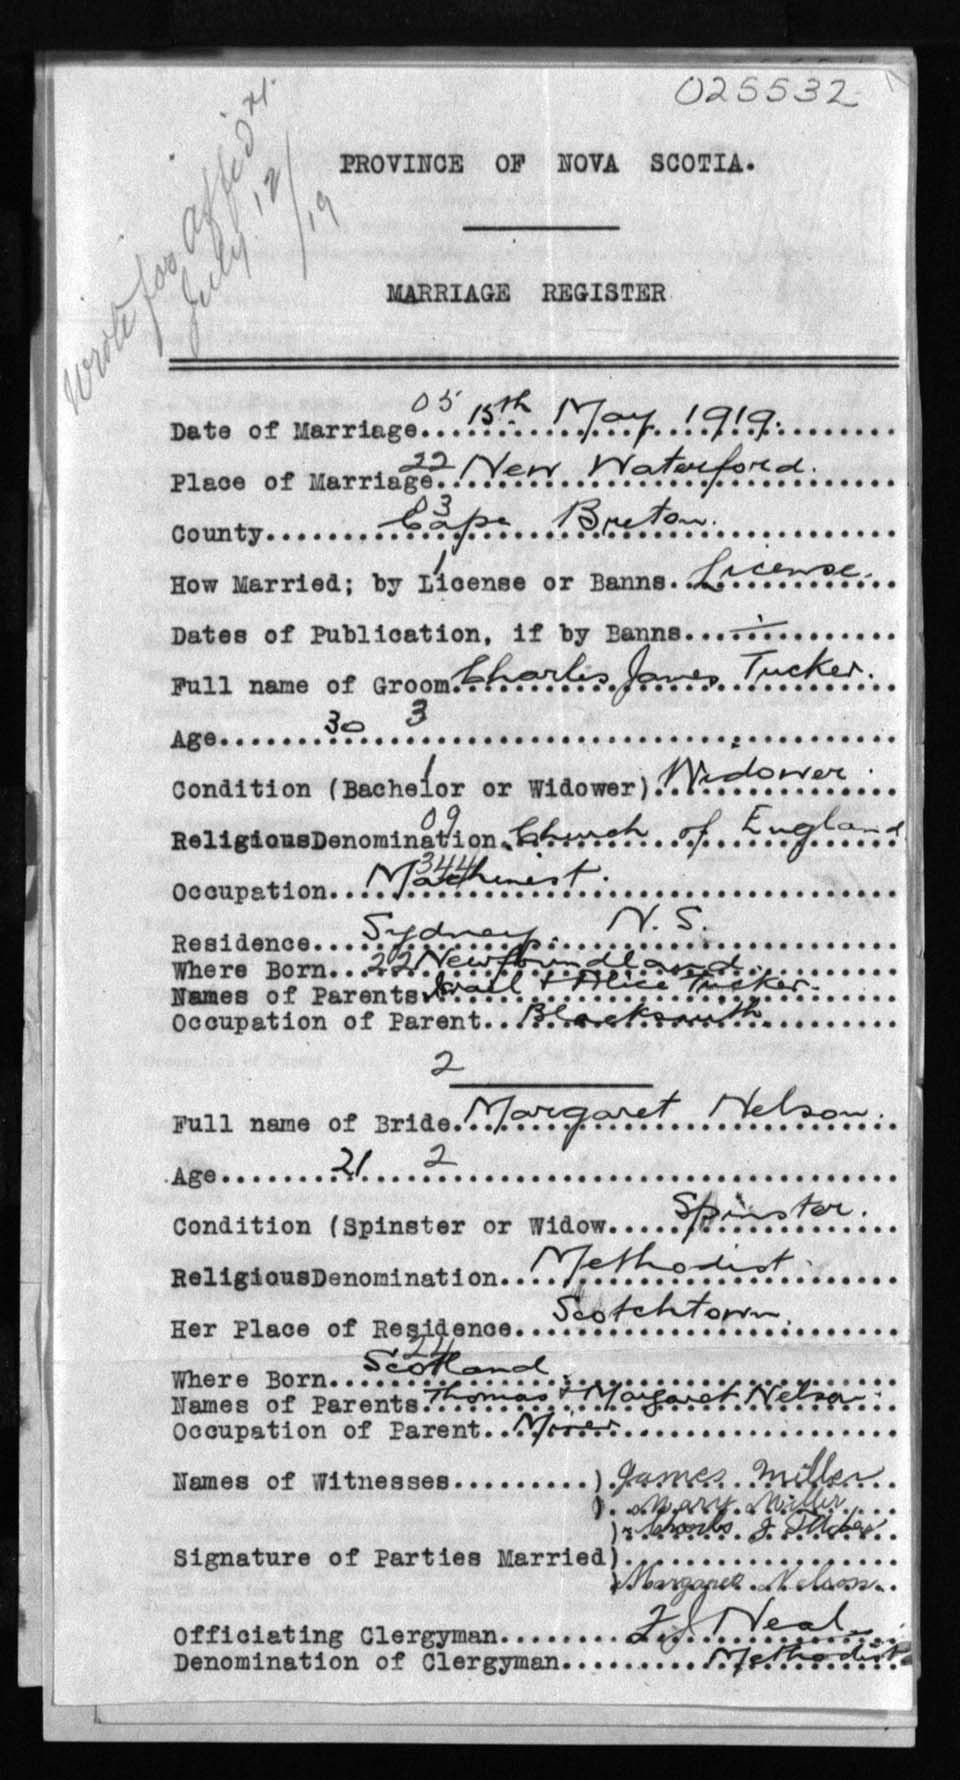 025532
Wrote for Affid
July 12/19
PROVINCE OF NOVA SCOTIA.
MARRIAGE REGISTER
05
Date of Marriage....15th May 1919.
22
Place of Marriage...New Waterford.
03
County.......Cape Breton.
1
How Married; by License or Banns..License.
Dates of Publication, if by Banns....
Full name of Groom.Charles James Tucker.
Age.......30 3
1
Condition (Bachelor or Widower).Widower.
09
ReligiousDenomination.Church of England
344
Occupation...Machinist.
Residence....Sydney N.S.
Where Born...22 Newfoundland.
Names of Parents. Israel + Alice Tucker.
Occupation of Parent..Blacksmith.
2
Full name of Bride.Margaret Nelson.
Age........21 2
Condition (Spinster or Widow....Spinster.
ReligiousDenomination..Methodist.
Her Place of Residence...Scotchtown.
24
Where Born...Scotland.
Names of Parents.Thomas + Margaret Nelson.
Occupation of Parent..Miner.
Names of Witnesses.........).James Miller
).Mary Miller
).Charles J Tucker
Signature of Parties Married)
).Margaret Nelson.
Officiating Clergyman.........F J Neal
Denomination of Clergyman..........Methodist